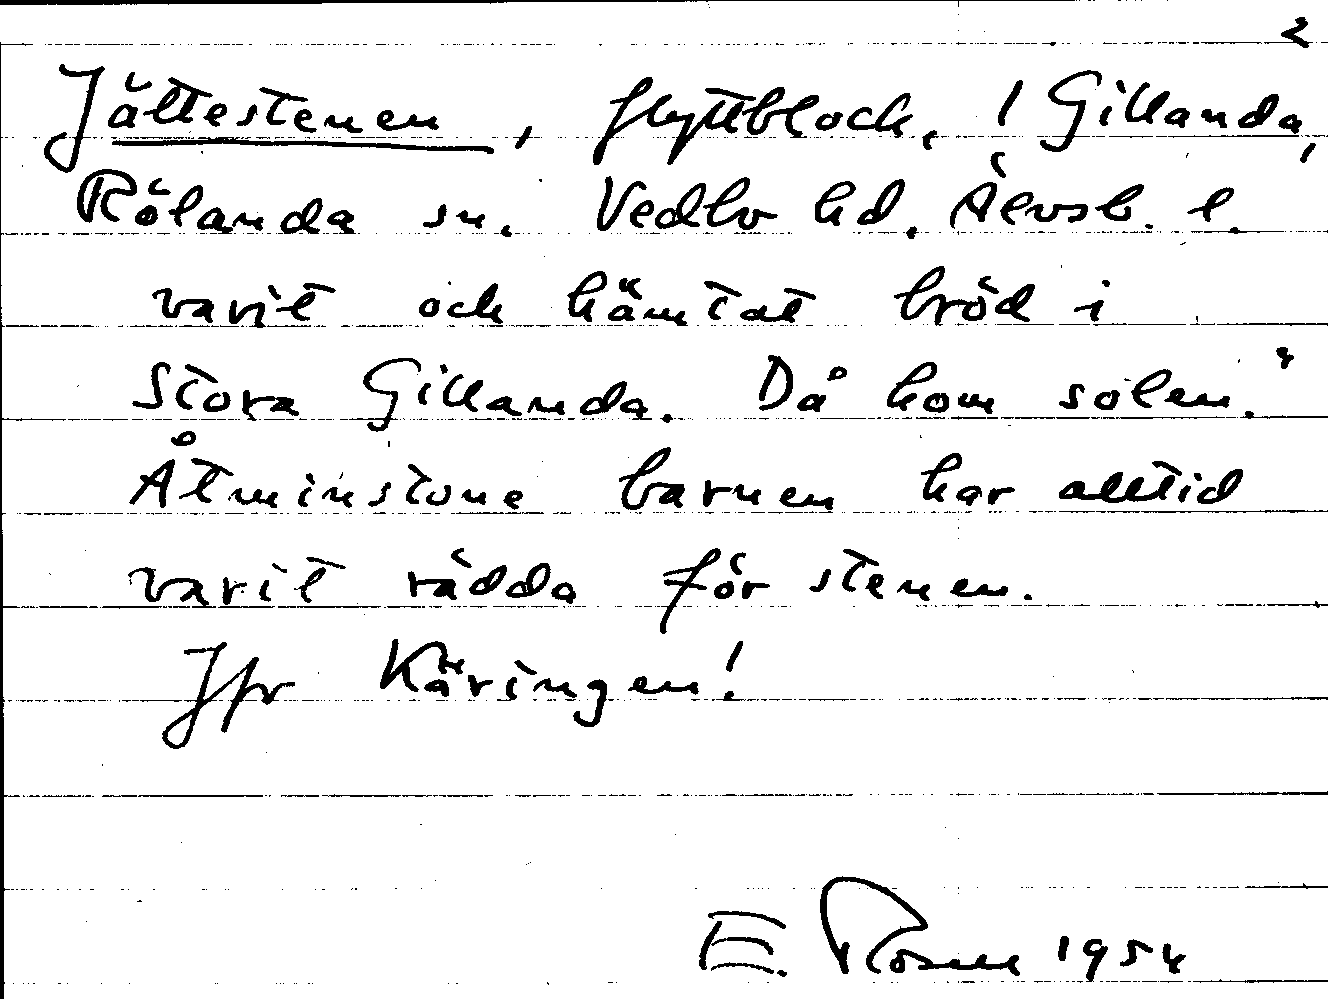 2
Jättestenen, flyttblock, l Gillanda,
Rölanda sn. Vedbo hd. Älvsb. l.
varit och hämtat bröd i
Stora Gillanda. Då kom solen."
Åtminstone barnen har alltid
varit rädda för stenen.
Jfr Käringen!
E. Rosen 1954